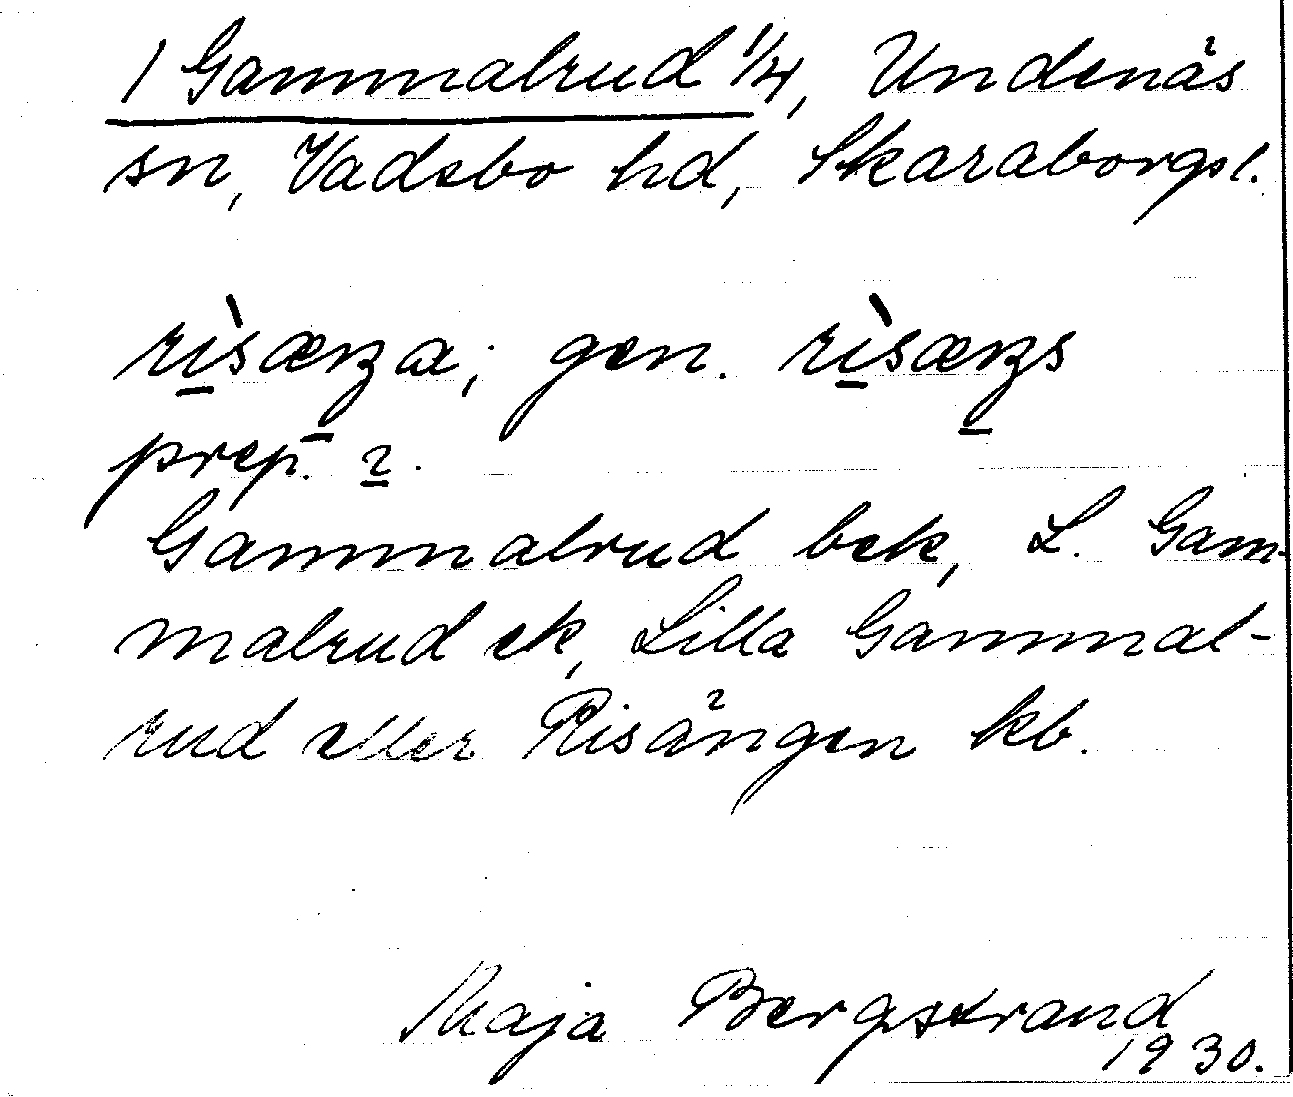 1 Gammalrud 1/4, Undenäs
sn, Vadsbo hd, Skaraborgsl.
rìsæŋa; gen. rìsæŋs
prep. ɿ.
Gammalrud bek, L. Gam-
malrud ek, Lilla Gammal-
rud eller Risängen kb.
Maja Bergstrand
1930.